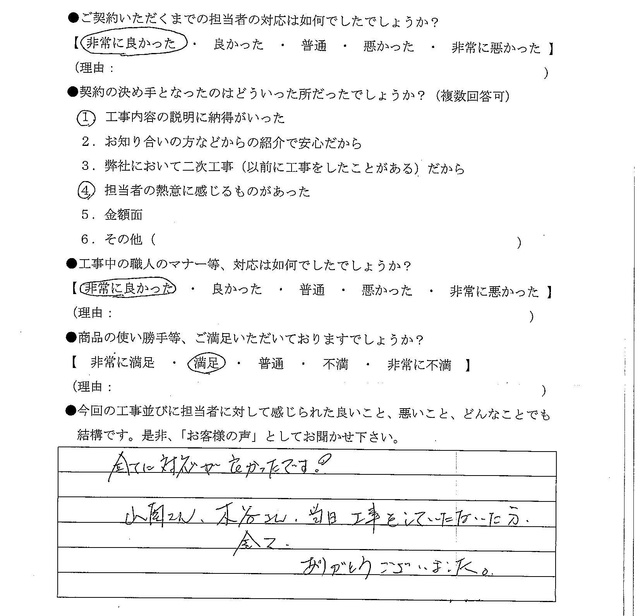 ●ご契約いただくまでの担当者の対応は如何でしたでしょうか？
【 非常に良かった ・ 良かった ・ 普通 ・ 悪かった ・ 非常に悪かった 】
（理由： ）
●契約の決め手となったのはどういった所だったでしょうか？（複数回答可）
① 工事内容の説明に納得がいった
２．お知り合いの方などからの紹介で安心だから
３．弊社において二次工事（以前に工事をしたことがある）だから
④ 担当者の熱意に感じるものがあった
５．金額面
６．その他（ ）
●工事中の職人のマナー等、対応は如何でしたでしょうか？
【 非常に良かった ・ 良かった ・ 普通 ・ 悪かった ・ 非常に悪かった 】
（理由： ）
●商品の使い勝手等、ご満足いただいておりますでしょうか？
【 非常に満足 ・ 満足 ・ 普通 ・ 不満 ・ 非常に不満 】
（理由： ）
●今回の工事並びに担当者に対して感じられた良いこと、悪いこと、どんなことでも
結構です。是非、「お客様の声」としてお聞かせ下さい。
全てに対応が良かったです！
さん、さん、当日工事をしていただいた方、
全て、
ありがとうございました。